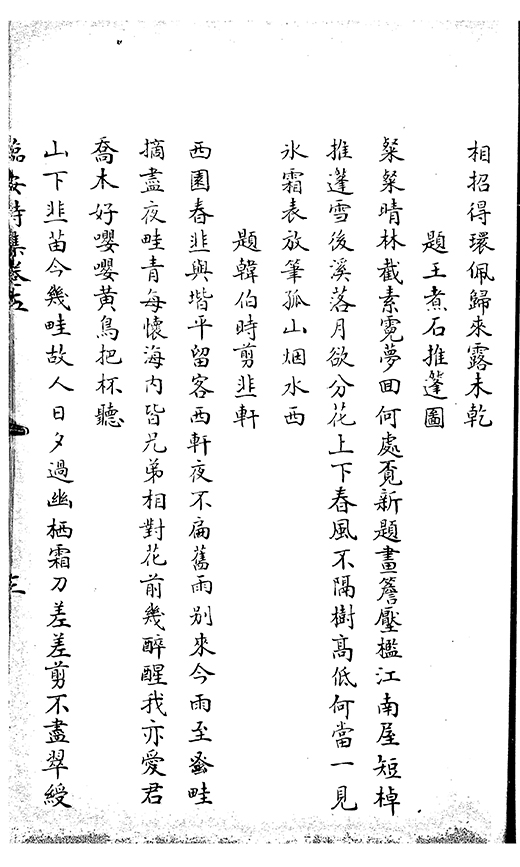 相招得環佩歸來露未乾
題王煮石推蓬圖
粲粲晴林截素霓夢回何處覔新題畫簷壓檻江南屋短棹
推蓬雪後溪落月欲分花上下春風不隔樹髙低何當一見
氷霜表放筆孤山烟水西
題韓伯時剪韭軒
西園春韭與堦平留客西軒夜不扃舊雨别來今雨至蚤畦
摘盡夜畦青每懷海内皆兄弟相對花前幾醉醒我亦愛君
喬木好嚶嚶黄鳥把杯聽
山下韭苗今幾畦故人日夕過幽栖霜刀差差剪不盡翠綬
臨安詩集卷五
三